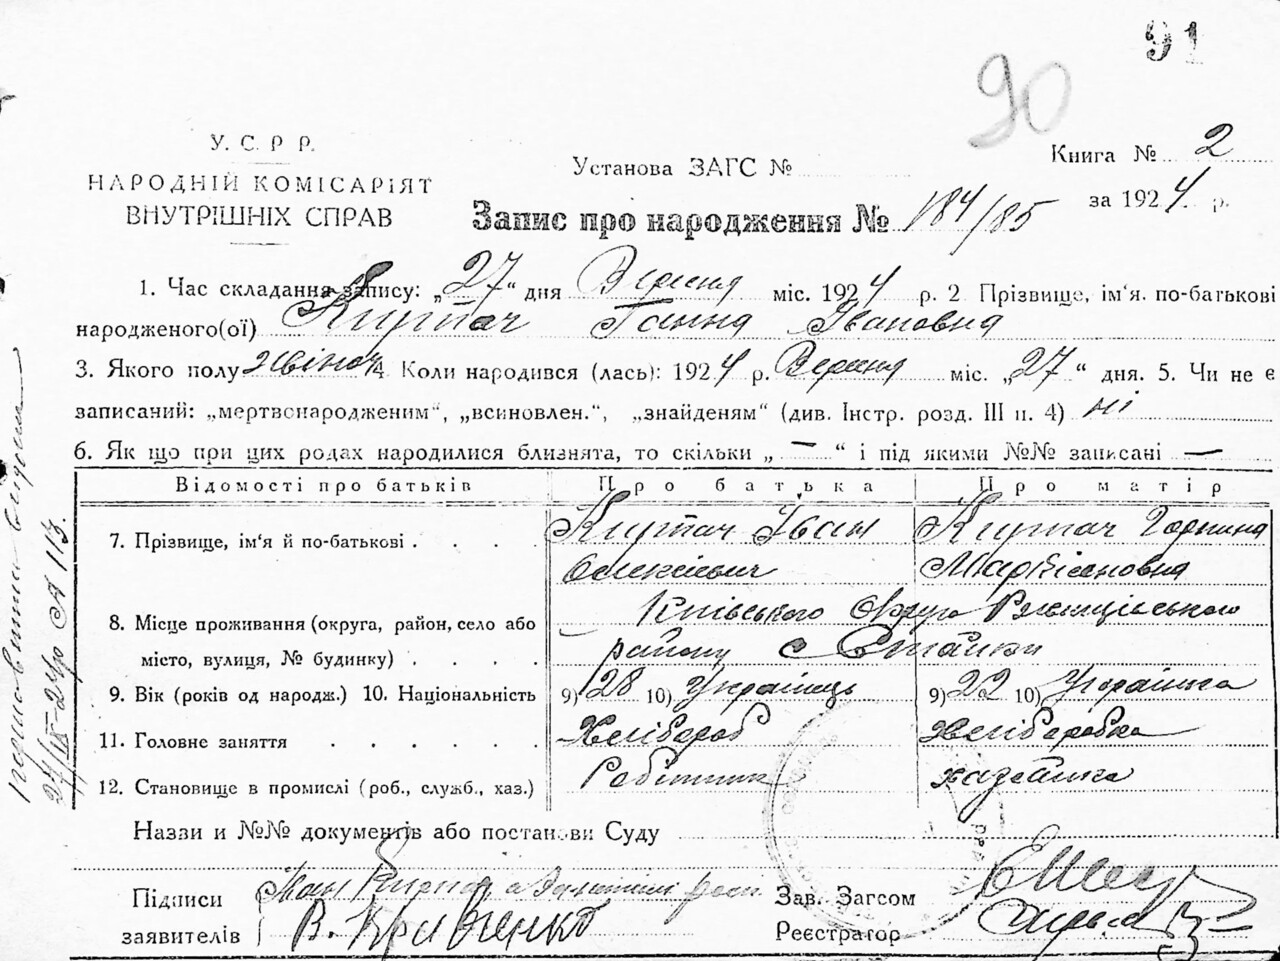 91
90
У. С. Р Р.
НАРОДНІЙ КОМІСАРІЯТ
ВНУТРІШНІХ СПРАВ
Установа ЗАГС №
Книга № 2
за 1924 р.
Запис про народження № 184/85
1. Час складання запису: „27“ дня Вересня міс. 1924 р. 2 Прізвище, ім‘я. по-батькові
народженого(ої) Киртач Ганна Івановна
3. Якого полу жіноч 4. Коли народився (лась): 1924 р. Вересня міс. „27“ дня. 5. Чи не є
записаний: „мертвонародженим“, „всиновлен.“, „знайденям“ (див. Інстр. розд. III п. 4) ні
6. Як що при цих родах народилися близнята, то скільки „—“ і під якими №№ записані —
Відомості про батьків Про батька Про матір
7. Прізвище, ім‘я й по-батькові . . . . Киртач Іван Киртач Горпина
Олексієвич
8. Місце проживання (округа, район, село або Київського Округа Ржищівського
місто, вулиця, № будинку) . . . . району с Стайки
9. Вік (років од народж.) 10. Національність 9) 28 10) Украінець 9) 22 10) Украінка
11. Головне заняття . . . . . . Хлібороб Хліборобка
12. Становище в промислі (роб., служб., хаз.) Робітник хазяйка
Назви и №№ документів або постанови Суду
Підписи
заявителів В. Кравченко
Зав. Загсом
Реєстратор